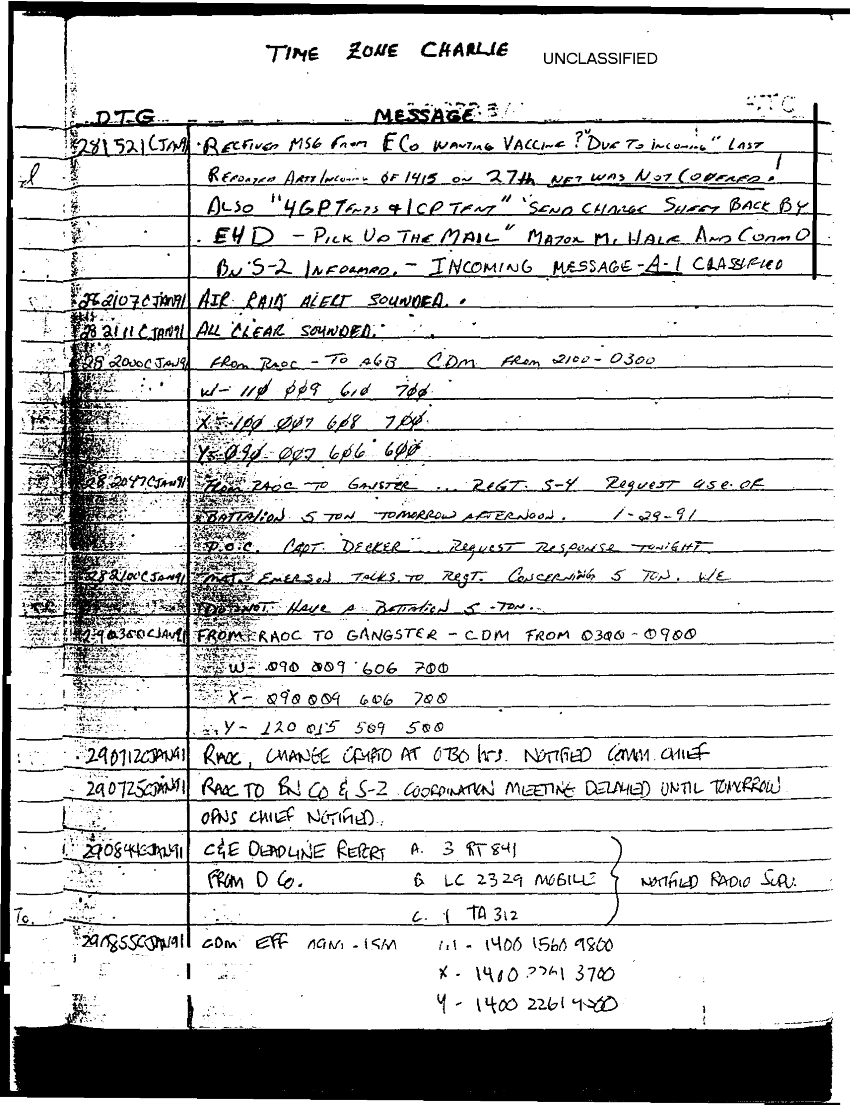 TIME ZONE CHARLIE UNCLASSIFIED
DTG MESSAGE
281521C JAN91 RECEIVED MSG From E Co WANTING VACCINE? "DUE TO incoming" LAST
REPORTED ARTY/Incoming OF 1415 ON 27th NET WAS NOT COVERED.
ALSO "4 GP TENTS & 1 CP TENT" "SEND CHARGE SHEET BACK BY
E4D - PICK UP THE MAIL" MAJOR M. HALE AND COMMO
BN S-2 INFORMED. - INCOMING MESSAGE - A-1 CLASSIFIED
282107C JAN91 AIR RAID ALERT SOUNDED.
282111C JAN91 ALL CLEAR SOUNDED.
28 2000C JAN91 FROM RAOC - TO AGB CDM FROM 2100-0300
W- 110 009 610 700
X- 100 007 608 700
Y- 090 007 606 600
28 2047C JAN91 FROM RAOC TO GANSTER ... REGT. S-4 REQUEST USE OF
BATTALION 5 TON TOMORROW AFTERNOON. 1-29-91
P.O.C. CAPT. DECKER ... REQUEST RESPONSE TONIGHT
28 2100C JAN91 EMERSON TALKS TO REGT. CONCERNING 5 TON. WE
DO NOT HAVE A BATTALION 5-TON.
290300C JAN91 FROM RAOC TO GANGSTER - CDM FROM 0300-0900
W- 090 009 606 700
X- 090 009 606 700
Y- 120 015 509 500
290712C JAN91 RAOC, CHANGE CRYPTO AT 0730 HRS. NOTIFIED COMM CHIEF
290725C JAN91 RAOC TO BN CO & S-2 COORDINATION MEETING DELAYED UNTIL TOMORROW
OPNS CHIEF NOTIFIED.
290844C JAN91 C&E DEADLINE REPORT A. 3 RT 841
FROM D CO. B LC 2329 MOBILE NOTIFIED RADIO SUPV.
C. 1 TA 312
To.
290855C JAN91 CDM EFF - 1400 1560 9800
X - 1400 3700
Y - 1400 2261